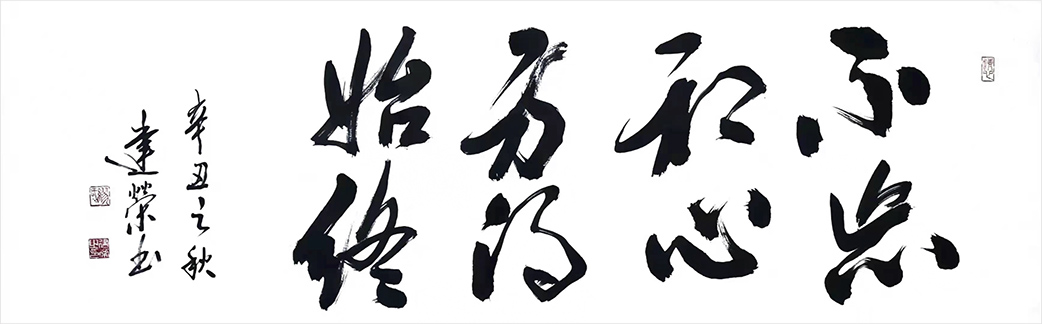 不忘
初心
方得
始终
辛丑之秋
建荣书